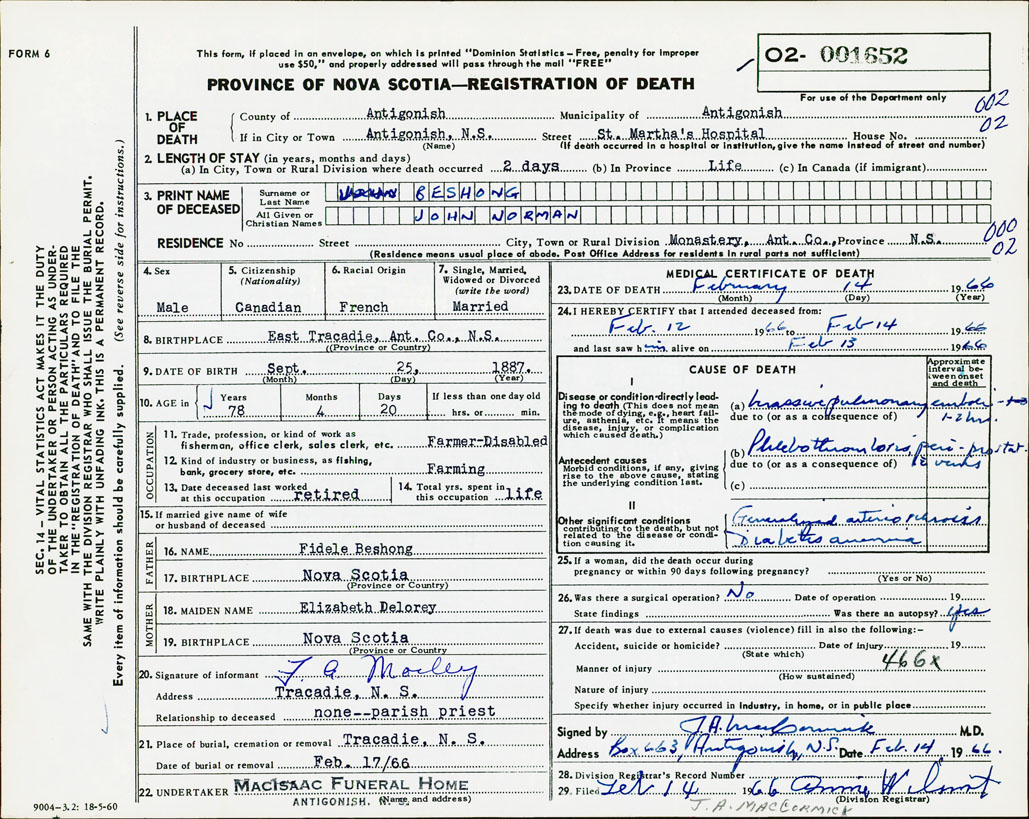 FORM 6
This form, if placed in an envelope, on which is printed "Dominion Statistics – Free, penalty for improper
use $50," and properly addressed will pass through the mail "FREE"
PROVINCE OF NOVA SCOTIA—REGISTRATION OF DEATH
O2- 001652
For use of the Department only
002
02
SEC. 14 – VITAL STATISTICS ACT MAKES IT THE DUTY
OF THE UNDERTAKER OR PERSON ACTING AS UNDER-
TAKER TO OBTAIN ALL THE PARTICULARS REQUIRED
IN THE "REGISTRATION OF DEATH" AND TO FILE THE
SAME WITH THE DIVISION REGISTRAR WHO SHALL ISSUE THE BURIAL PERMIT.
WRITE PLAINLY WITH UNFADING INK. THIS IS A PERMANENT RECORD.
Every item of information should be carefully supplied. (See reverse side for instructions.)
1. PLACE OF DEATH
County of Antigonish Municipality of Antigonish
If in City or Town Antigonish, N.S. Street St. Martha's Hospital House No.
(Name) (If death occurred in a hospital or institution, give the name instead of street and number)
2. LENGTH OF STAY (in years, months and days)
(a) In City, Town or Rural Division where death occurred 2 days (b) In Province Life (c) In Canada (if immigrant)
3. PRINT NAME OF DECEASED
Surname or Last Name BESHONG
All Given or Christian Names JOHN NORMAN
000
02
RESIDENCE No Street City, Town or Rural Division Monastery, Ant. Co., Province N.S.
(Residence means usual place of abode. Post Office Address for residents in rural parts not sufficient)
4. Sex Male
5. Citizenship (Nationality) Canadian
6. Racial Origin French
7. Single, Married, Widowed or Divorced (write the word) Married
8. BIRTHPLACE East Tracadie, Ant. Co., N.S.
((Province or Country)
9. DATE OF BIRTH Sept. 25, 1887.
(Month) (Day) (Year)
10. AGE in Years 78 Months 4 Days 20 If less than one day old hrs. or min.
OCCUPATION
11. Trade, profession, or kind of work as
fisherman, office clerk, sales clerk, etc. Farmer-Disabled
12. Kind of industry or business, as fishing,
bank, grocery store, etc. Farming
13. Date deceased last worked
at this occupation retired
14. Total yrs. spent in
this occupation life
15. If married give name of wife
or husband of deceased
FATHER
16. NAME Fidele Beshong
17. BIRTHPLACE Nova Scotia
(Province or Country)
MOTHER
18. MAIDEN NAME Elizabeth Delorey
19. BIRTHPLACE Nova Scotia
(Province or Country)
20. Signature of informant
Address Tracadie, N. S.
Relationship to deceased none--parish priest
21. Place of burial, cremation or removal Tracadie, N. S.
Date of burial or removal Feb. 17/66
22. UNDERTAKER MACISAAC FUNERAL HOME
ANTIGONISH. (Name and address)
9004-3.2: 18-5-60
MEDICAL CERTIFICATE OF DEATH
23. DATE OF DEATH February 14 1966
(Month) (Day) (Year)
24. I HEREBY CERTIFY that I attended deceased from:
Feb. 12 1966 to Feb 14 1966
and last saw him alive on Feb 13 1966
CAUSE OF DEATH
Approximate interval between onset and death
I
Disease or condition directly lead-
ing to death (This does not mean
the mode of dying, e.g., heart fail-
ure, asthenia, etc. It means the
disease, injury, or complication
which caused death.)
(a) massive pulmonary emboli
due to (or as a consequence of) 1-2 hrs.
Antecedent causes
Morbid conditions, if any, giving
rise to the above cause, stating
the underlying condition last.
(b) Phlebothrombosis peri prostat.
due to (or as a consequence of) veins
(c)
II
Other significant conditions
contributing to the death, but not
related to the disease or condi-
tion causing it.
Generalized arteriosclerosis
Diabetes anemia
25. If a woman, did the death occur during
pregnancy or within 90 days following pregnancy?
(Yes or No)
26. Was there a surgical operation? No Date of operation 19
State findings Was there an autopsy? yes
27. If death was due to external causes (violence) fill in also the following:-
Accident, suicide or homicide? Date of injury 19
(State which) 466x
Manner of injury
(How sustained)
Nature of injury
Specify whether injury occurred in industry, in home, or in public place
Signed by J.A. MacCormick M.D.
Address Box 663, Antigonish, N.S. Date Feb. 14 1966.
28. Division Registrar's Record Number
29. Filed Feb 14 1966 Annie
(Division Registrar)
J.A. MACCORMICK